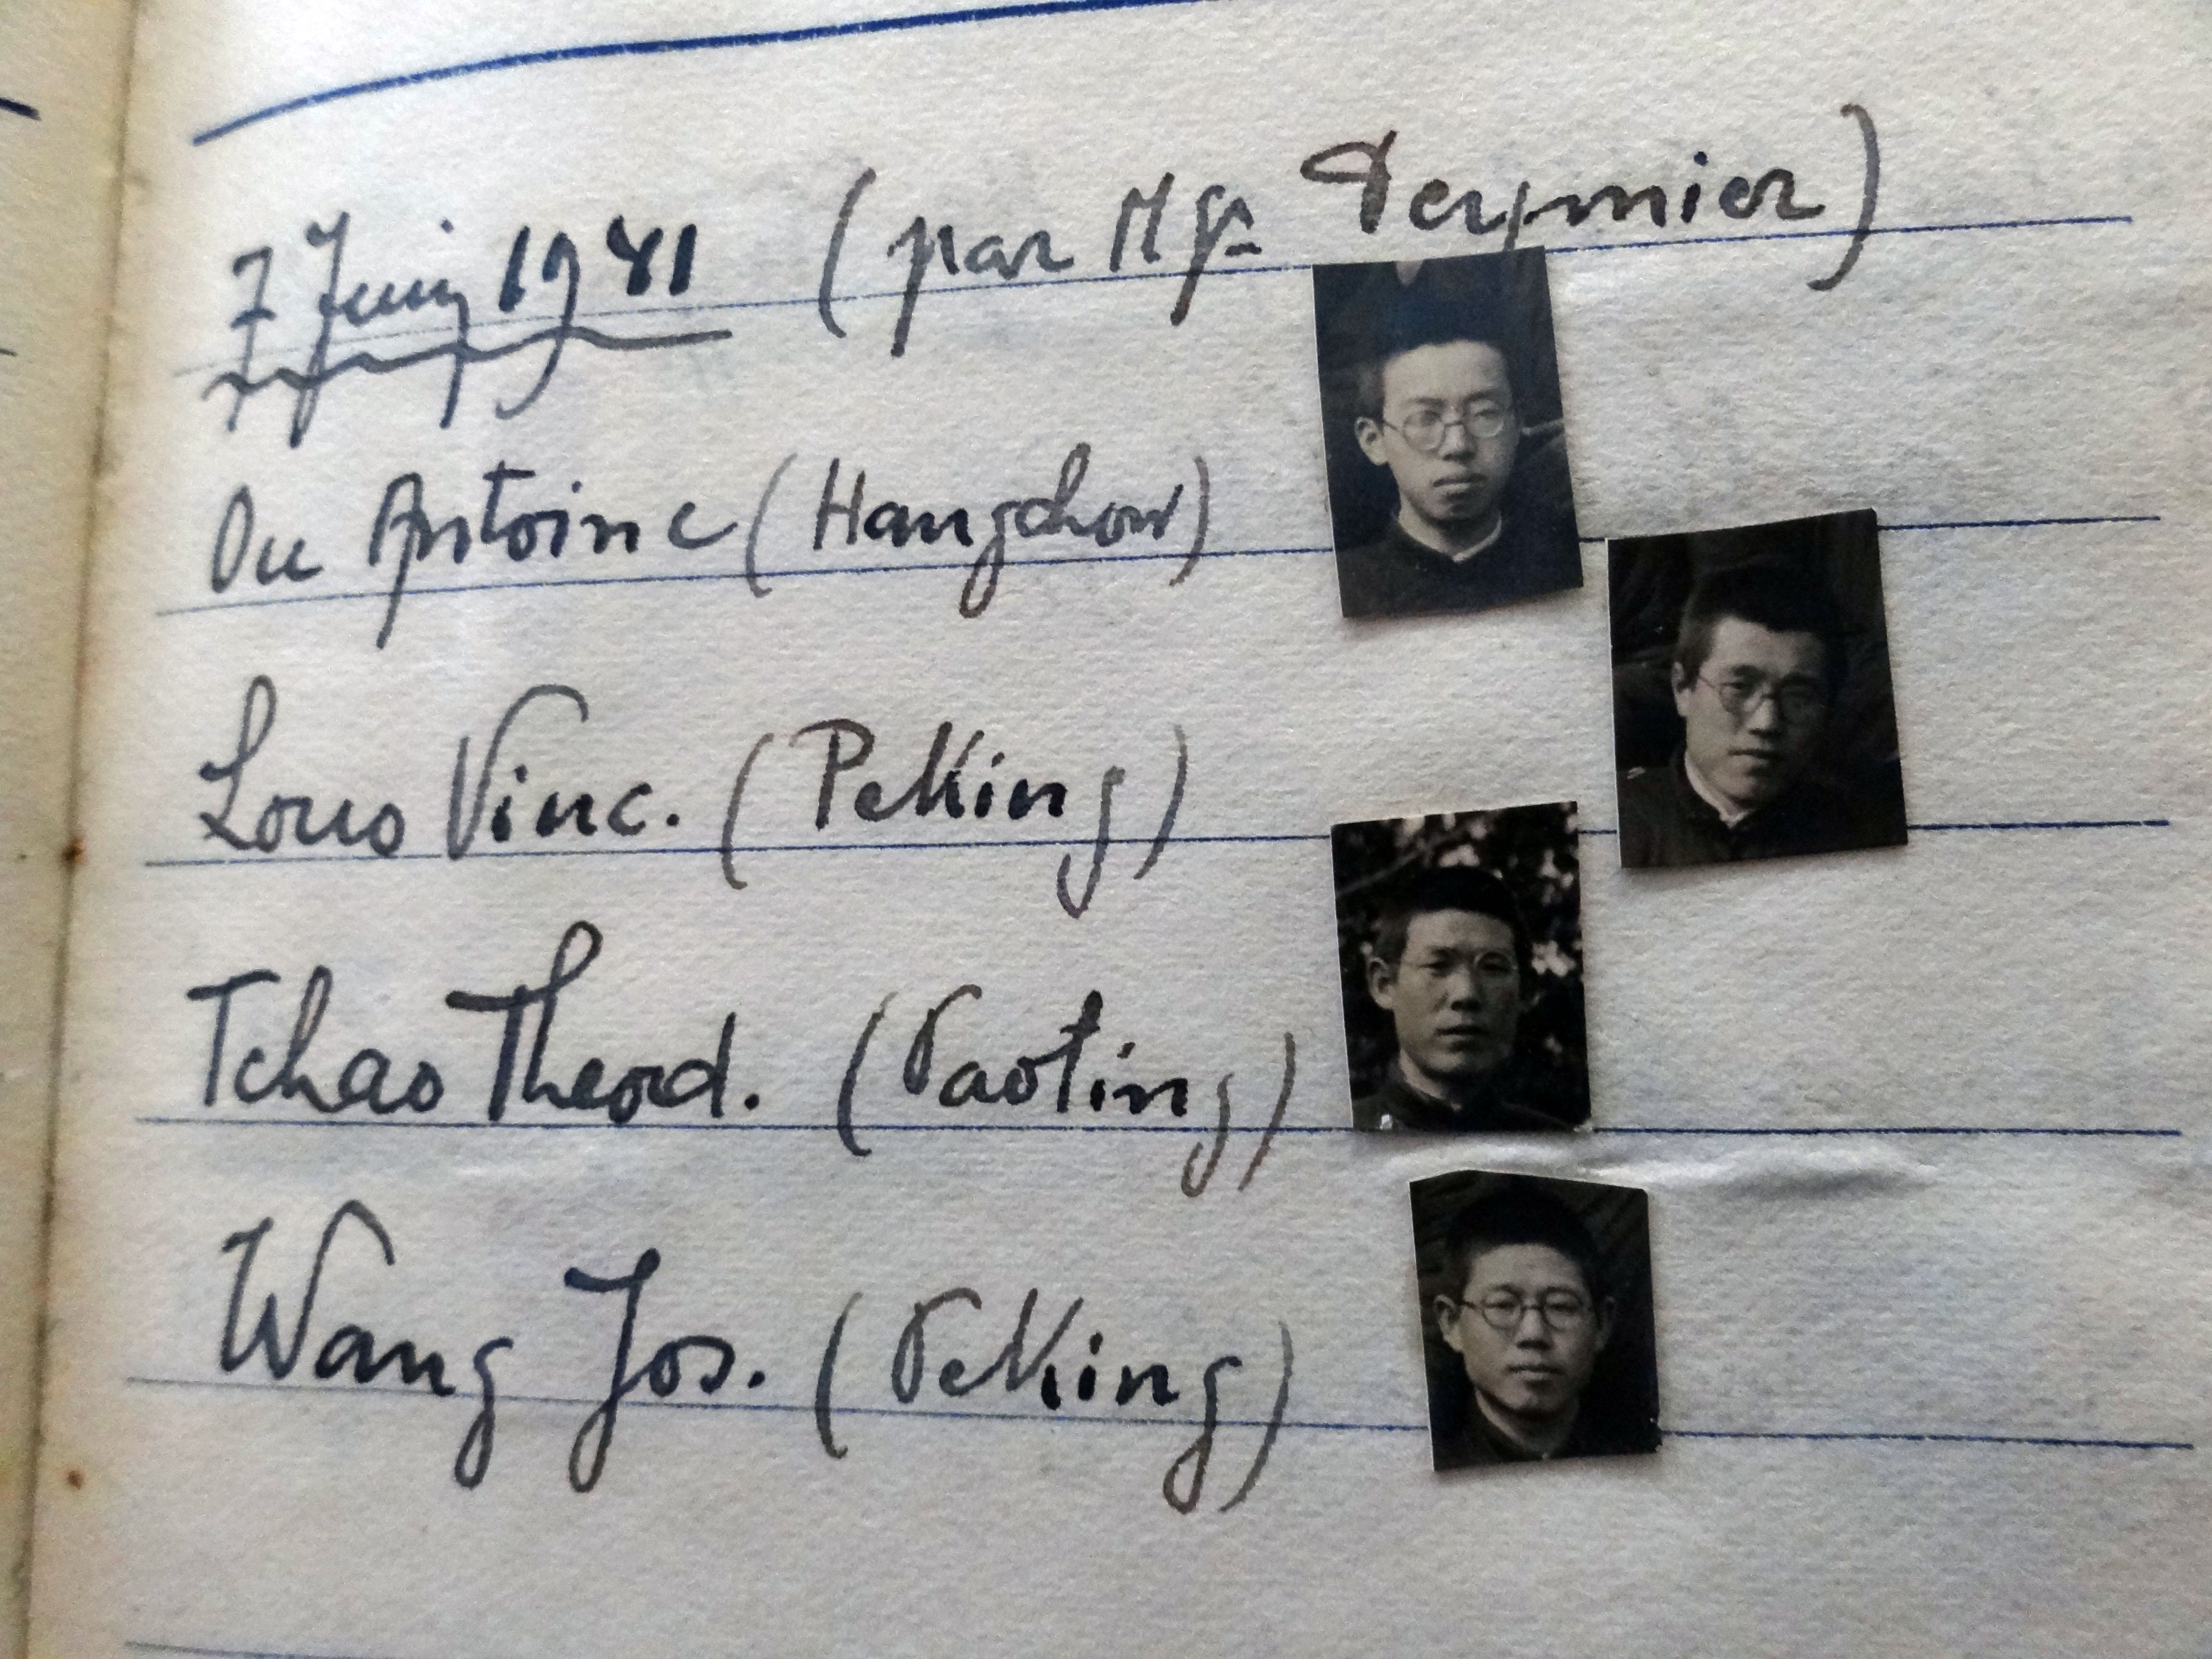 7 Juin 1941 (par Mgr Deymier)
Ou Antoine (Hangchow)
Louo Vinc. (Peking)
Tchao Theod. (Paoting)
Wang Jos. (Peking)